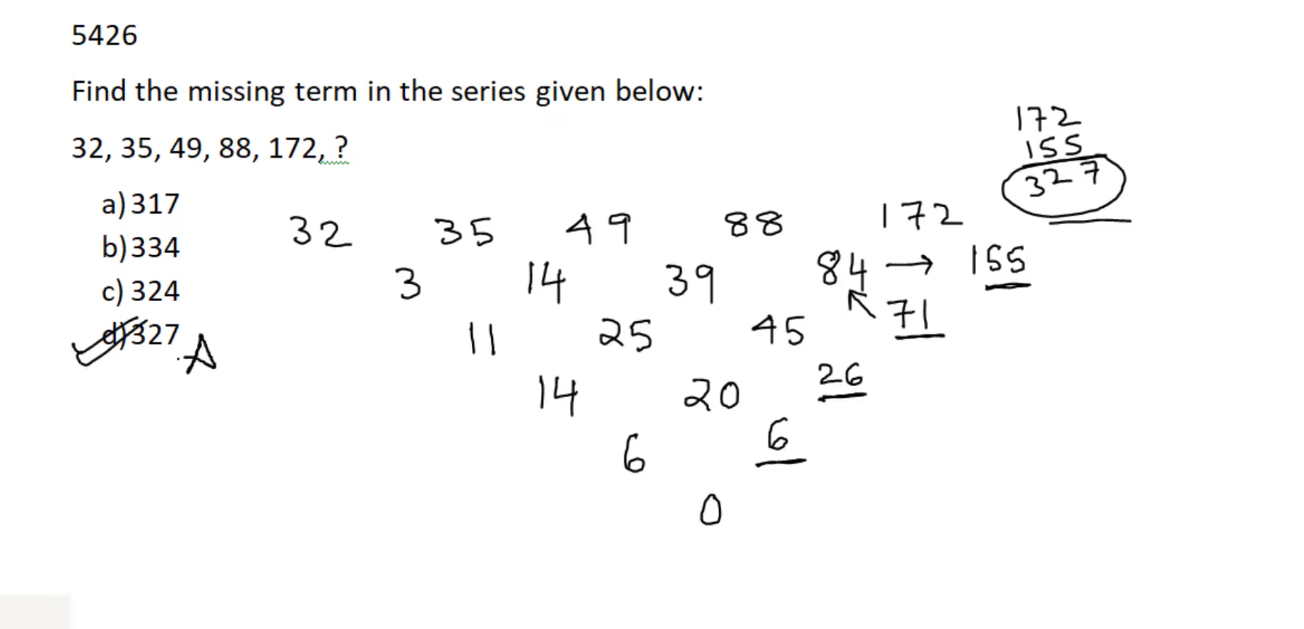 5426
Find the missing term in the series given below:
32, 35, 49, 88, 172, ?
a) 317
b) 334
c) 324
d) 327 A
172
155
327
32 35 49 88 172
3 14 39 84 → 155
11 25 45 71
14 20 26
6 6
0